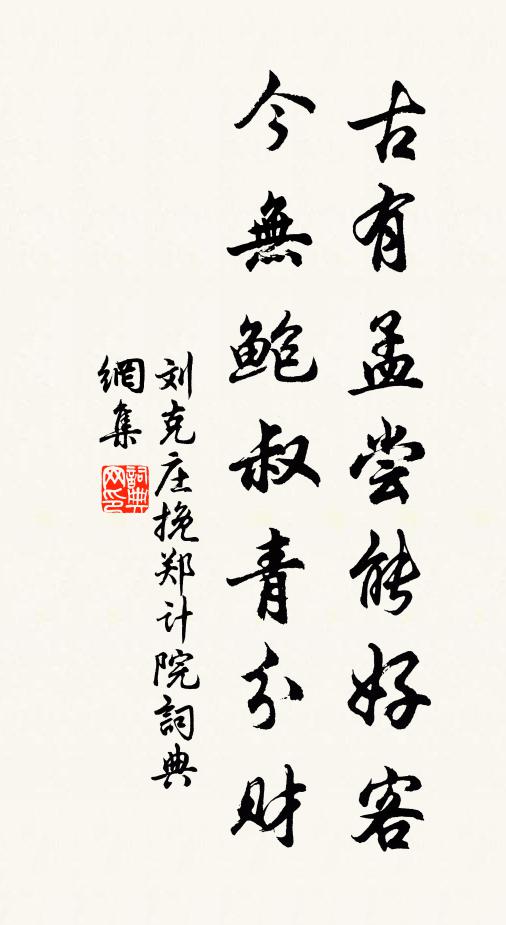 古有孟尝能好客
今無鲍叔青分财
刘克庄挽郑计院詞典
網集
詞典
网印